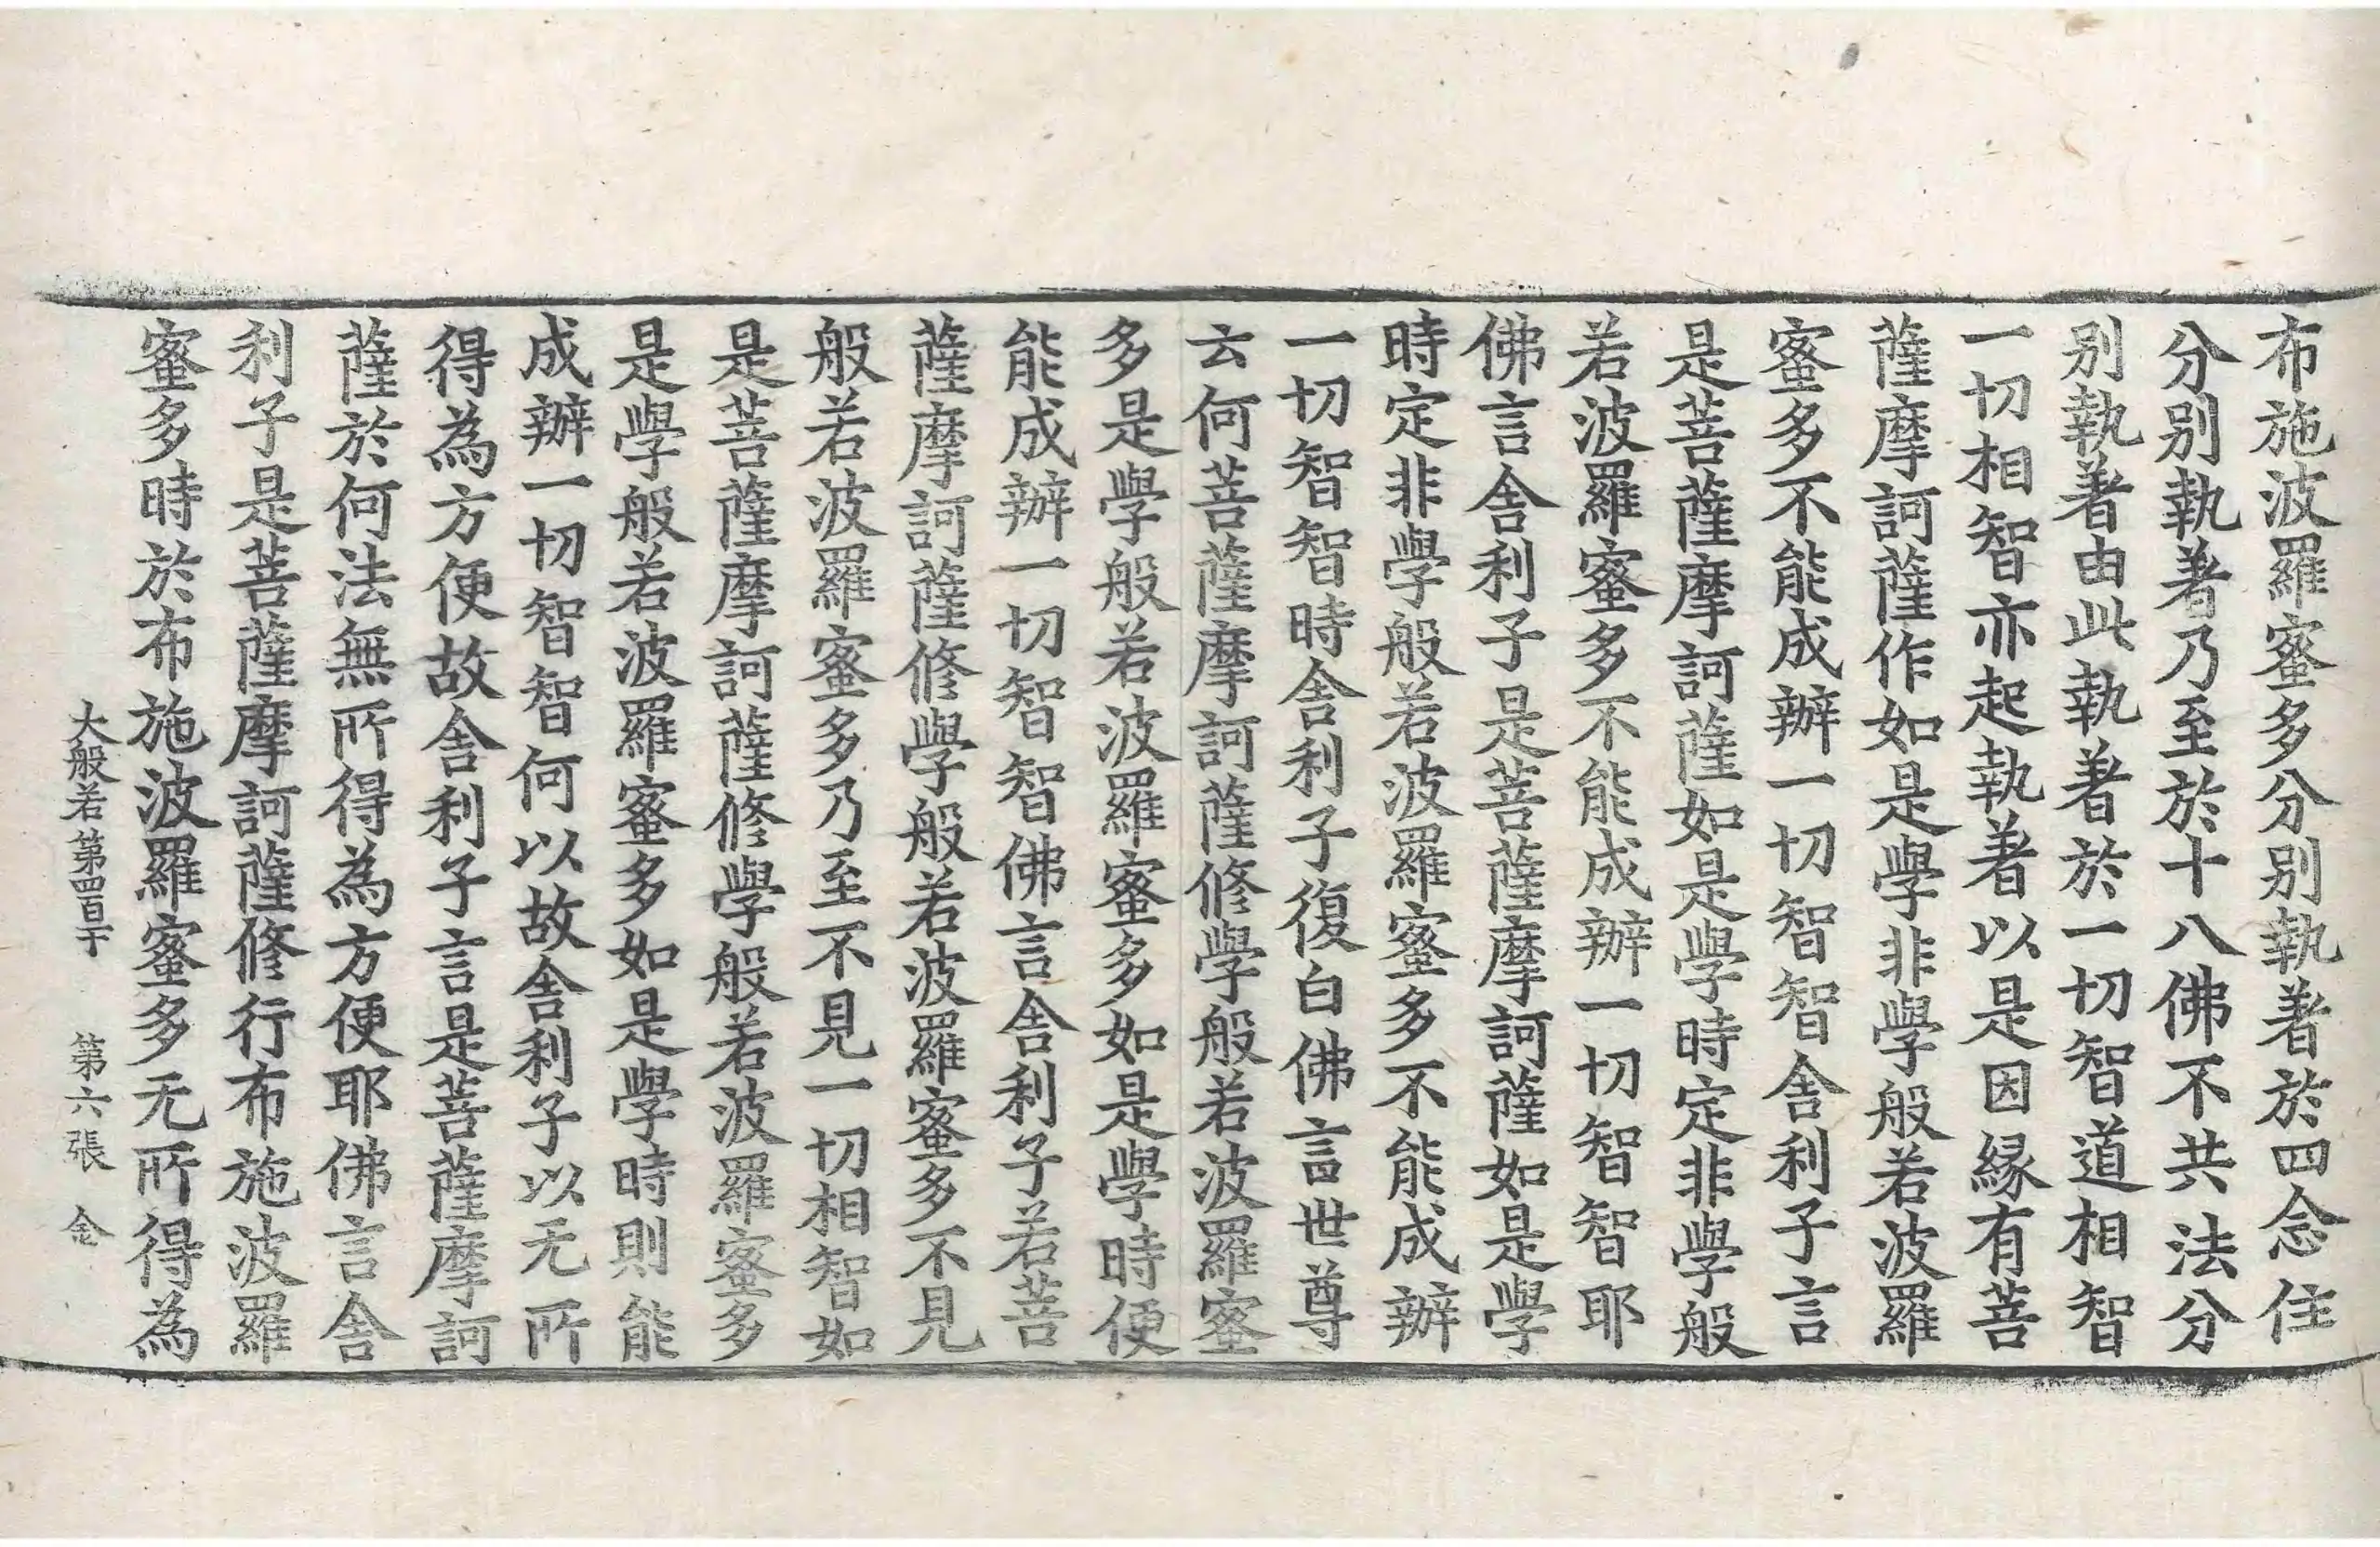 布施波羅蜜多分別執著於四念住
分別執著乃至於十八佛不共法分
別執著由此執著於一切智道相智
一切相智亦起執著以是因緣有菩
薩摩訶薩作如是學非學般若波羅
蜜多不能成辦一切智智舍利子言
是菩薩摩訶薩如是學時定非學般
若波羅蜜多不能成辦一切智智耶
佛言舍利子是菩薩摩訶薩如是學
時定非學般若波羅蜜多不能成辦
一切智智時舍利子復白佛言世尊
云何菩薩摩訶薩修學般若波羅蜜
多是學般若波羅蜜多如是學時便
能成辦一切智智佛言舍利子若菩
薩摩訶薩修學般若波羅蜜多不見
般若波羅蜜多乃至不見一切相智如
是菩薩摩訶薩修學般若波羅蜜多
是學般若波羅蜜多如是學時則能
成辦一切智智何以故舍利子以无所
得為方便故舍利子言是菩薩摩訶
薩於何法無所得為方便耶佛言舍
利子是菩薩摩訶薩修行布施波羅
蜜多時於布施波羅蜜多无所得為
大般若第四百十 第六張